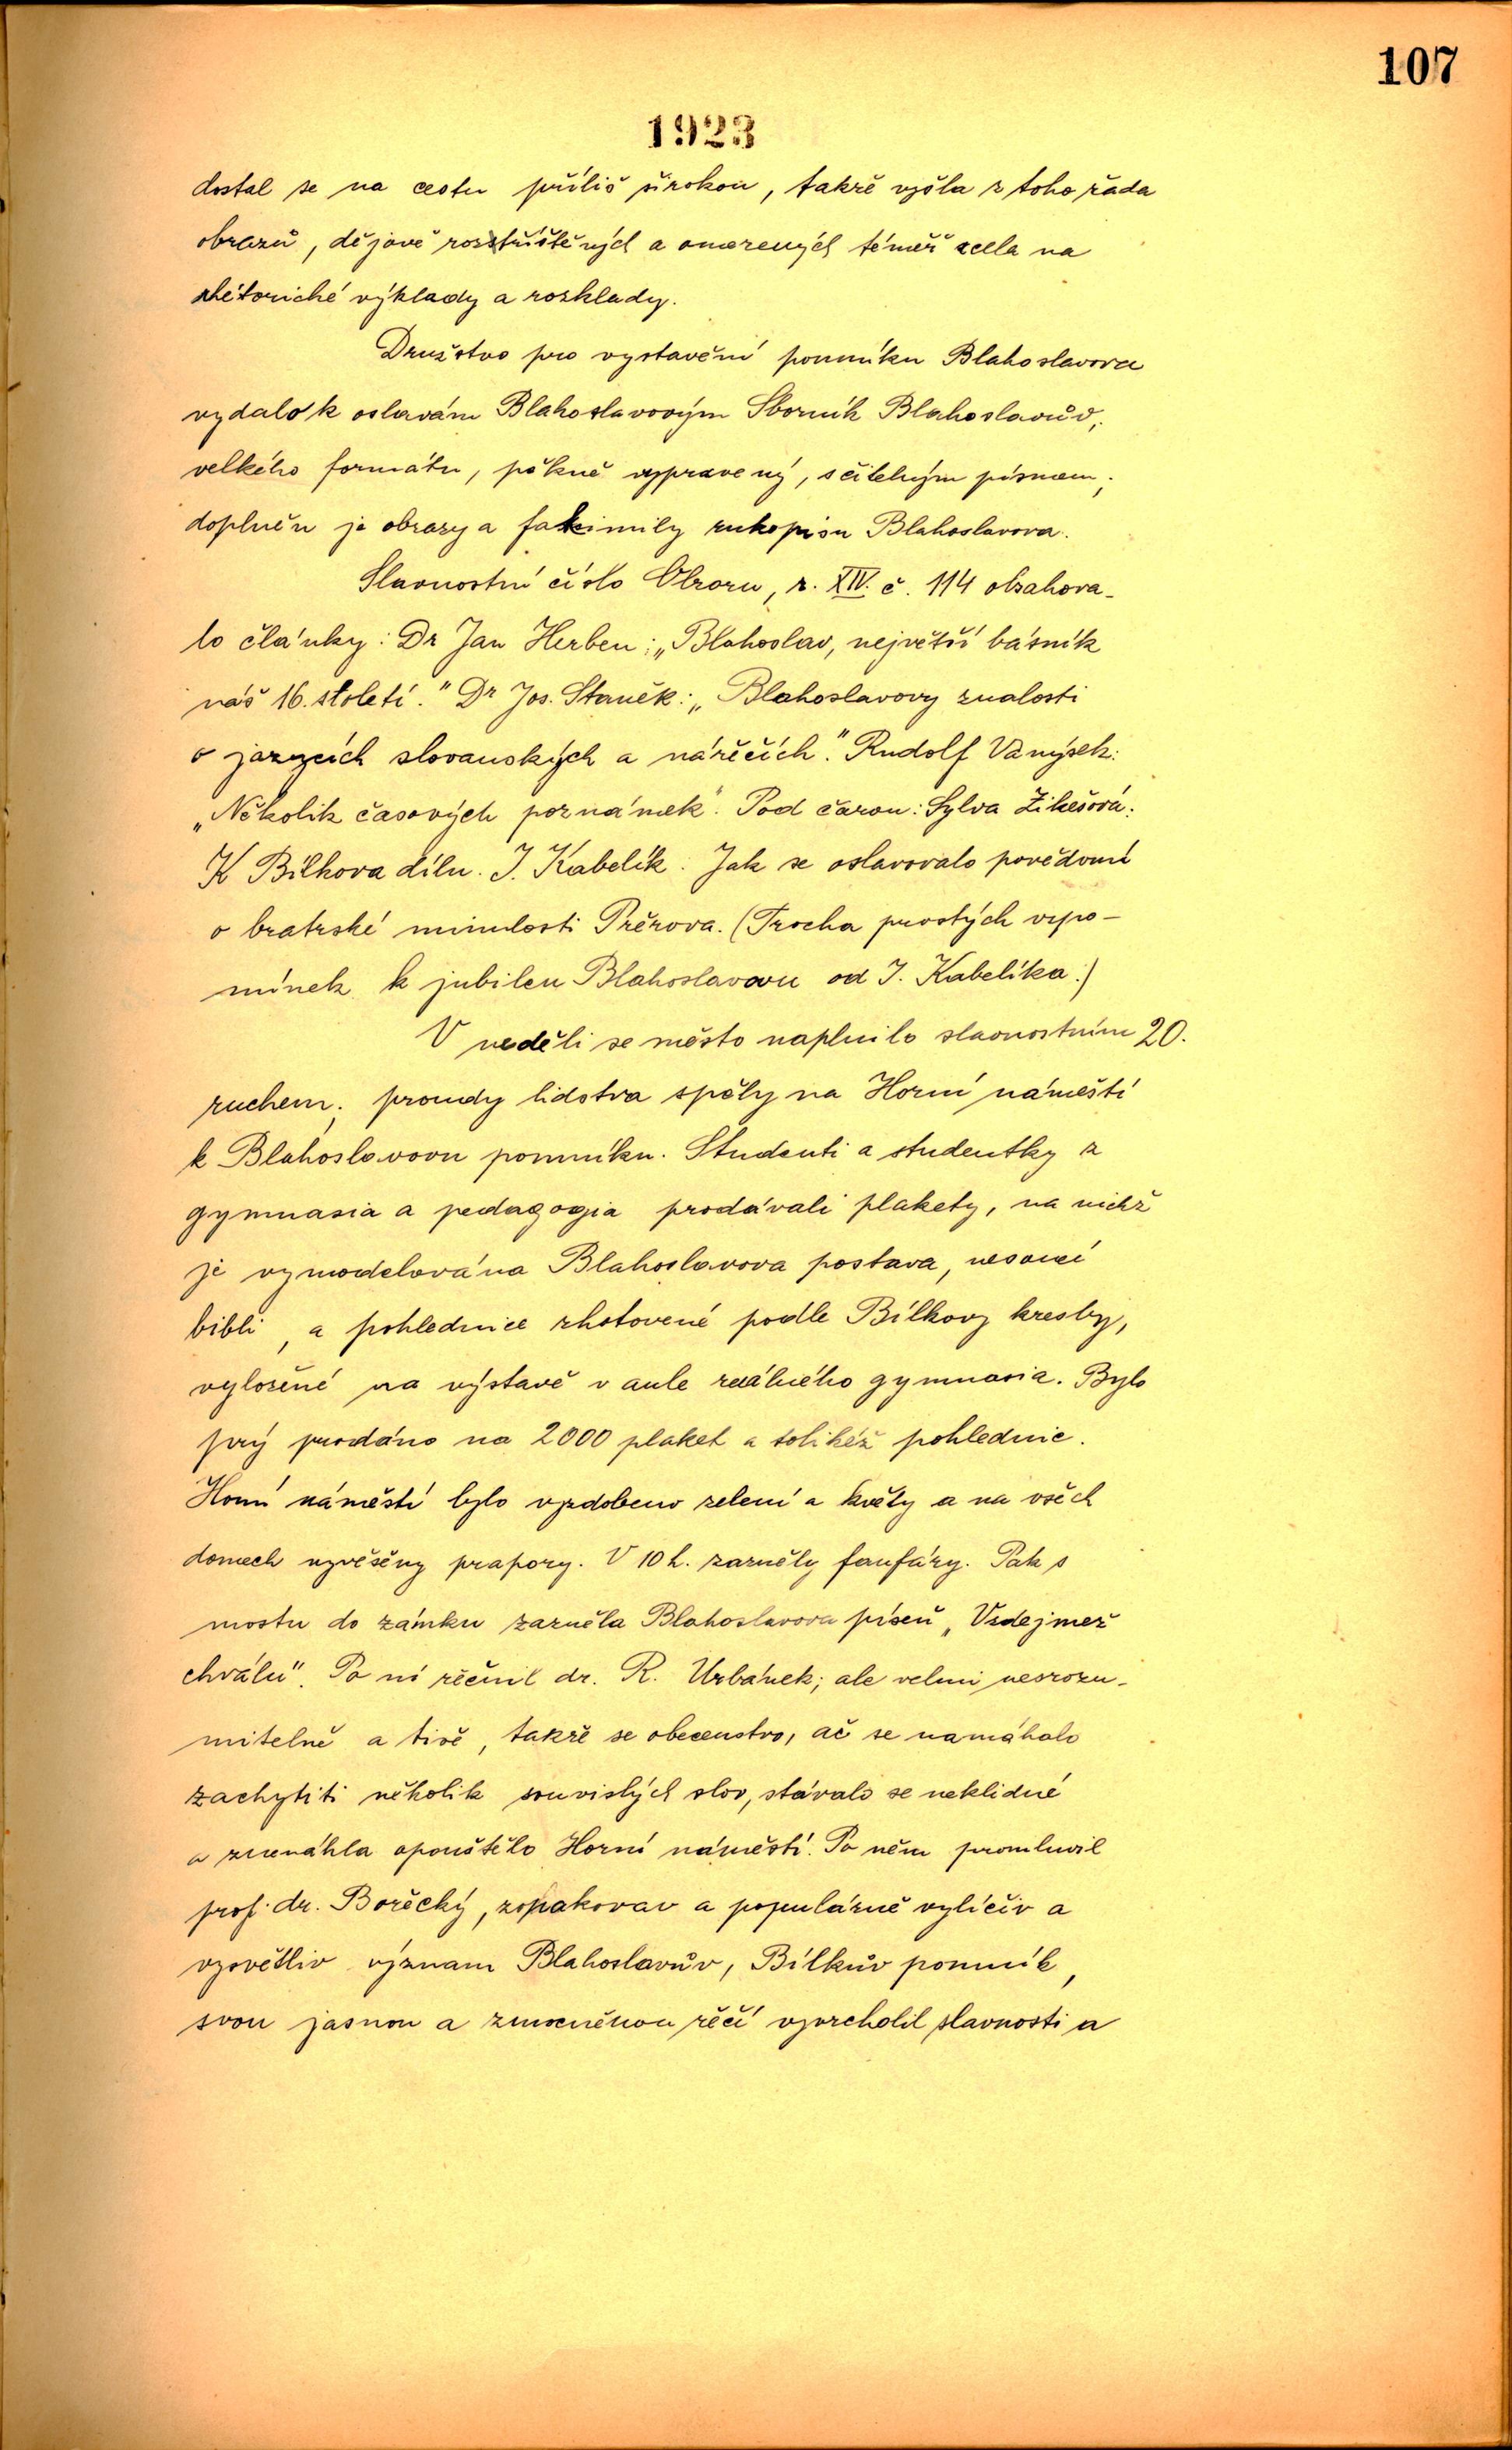 107
1923
dostal se na cestu příliš širokou, takže vyšla z toho řada
obrazů, dějově roztříštěných a omezených téměř zcela na
rhétorické výklady a rozklady.
Družstvo pro vystavění pomníku Blahoslavova
vydalo k oslavám Blahoslavovým Sborník Blahoslavův,
velkého formátu, pěkně vypravený, s čitelným písmem;
doplněn je obrazy a faksimily rukopisu Blahoslavova.
Slavnostní číslo Obzoru, r. XIV. č. 114 obsahova-
lo články: Dr Jan Herben: „Blahoslav, největší básník
náš 16. století." Dr Jos. Staněk: „Blahoslavovy znalosti
o jazycích slovanských a nářečích." Rudolf Vanýsek:
„Několik časových poznámek". Pod čarou: Sylva Žikešová:
K Bílkova dílu. J. Kabelík: Jak se oslavovalo povědomí
o bratrské minulosti Přerova. (Trocha prostých vzpo-
mínek k jubileu Blahoslavovu od J. Kabelíka.)
V neděli se město naplnilo slavnostním 20.
ruchem; proudy lidstva spěly na Horní náměstí
k Blahoslavovu pomníku. Studenti a studentky z
gymnasia a pedagogia prodávali plakety, na nichž
je vymodelována Blahoslavova postava, nesoucí
bibli, a pohlednice zhotovené podle Bílkovy kresby,
vyložené na výstavě v aule reálného gymnasia. Bylo
prý prodáno na 2000 plaket a tolikéž pohlednic.
Horní náměstí bylo vyzdobeno zelení a květy a na všech
domech vyvěšeny prapory. V 10 h. zazněly fanfáry. Pak s
mostu do zámku zazněla Blahoslavova píseň „Vzdejmež
chválu". Po ní řečnil dr. R. Urbánek; ale velmi nesrozu-
mitelně a tiše, takže se obecenstvo, ač se namáhalo
zachytiti několik souvislých slov, stávalo se neklidné
a znenáhla opouštělo Horní náměstí. Po něm promluvil
prof. dr. Bořecký, zopakovav a populárně vylíčiv a
vysvětliv význam Blahoslavův, Bílkův pomník,
svou jasnou a zmocněnou řečí vyvrcholil slavnosti a